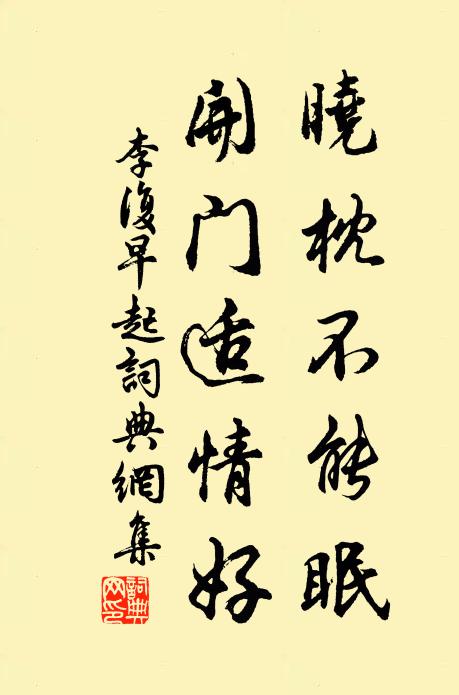 曉枕不能眠
開门适情好
李復早起詞典網集